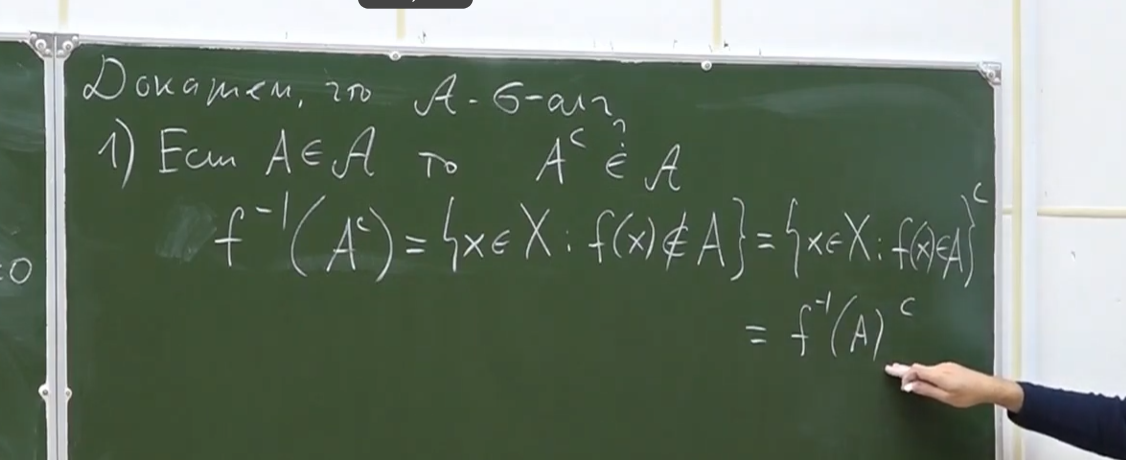 Докажем, что 𝒜 - σ-алг,
1) Если A ∈ 𝒜 то Aᶜ ∈̇? 𝒜
f⁻¹(Aᶜ) = {x ∈ X : f(x) ∉ A} = {x ∈ X : f(x) ∈ A}ᶜ
= f⁻¹(A)ᶜ
=0